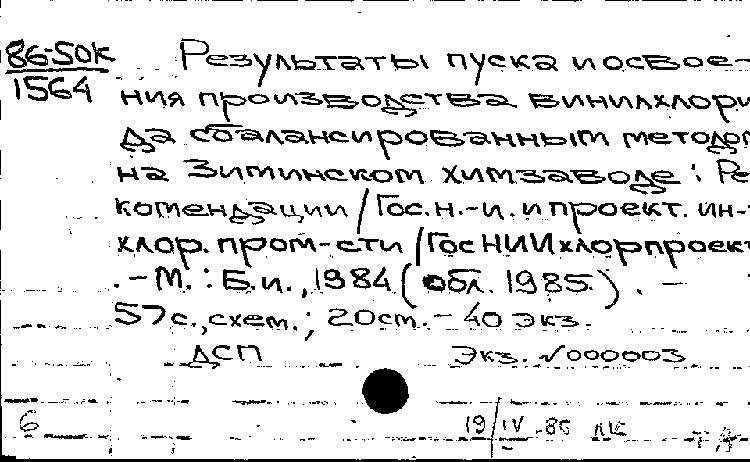 86-50к Результаты пуска и освое-
1564 ния производства винилхлори
да сбалансированным методом
на Зиминском химзаводе : Ре
комендации / Гос. н.-и. и проект. ин-т
хлор. пром-сти / ГосНИИхлорпроект
. - М. : Б.и., 1984 ( обл. 1985.) . -
57 с., схем. ; 20 см. - 40 экз.
ДСП Экз. №000003
6 19/IV-86